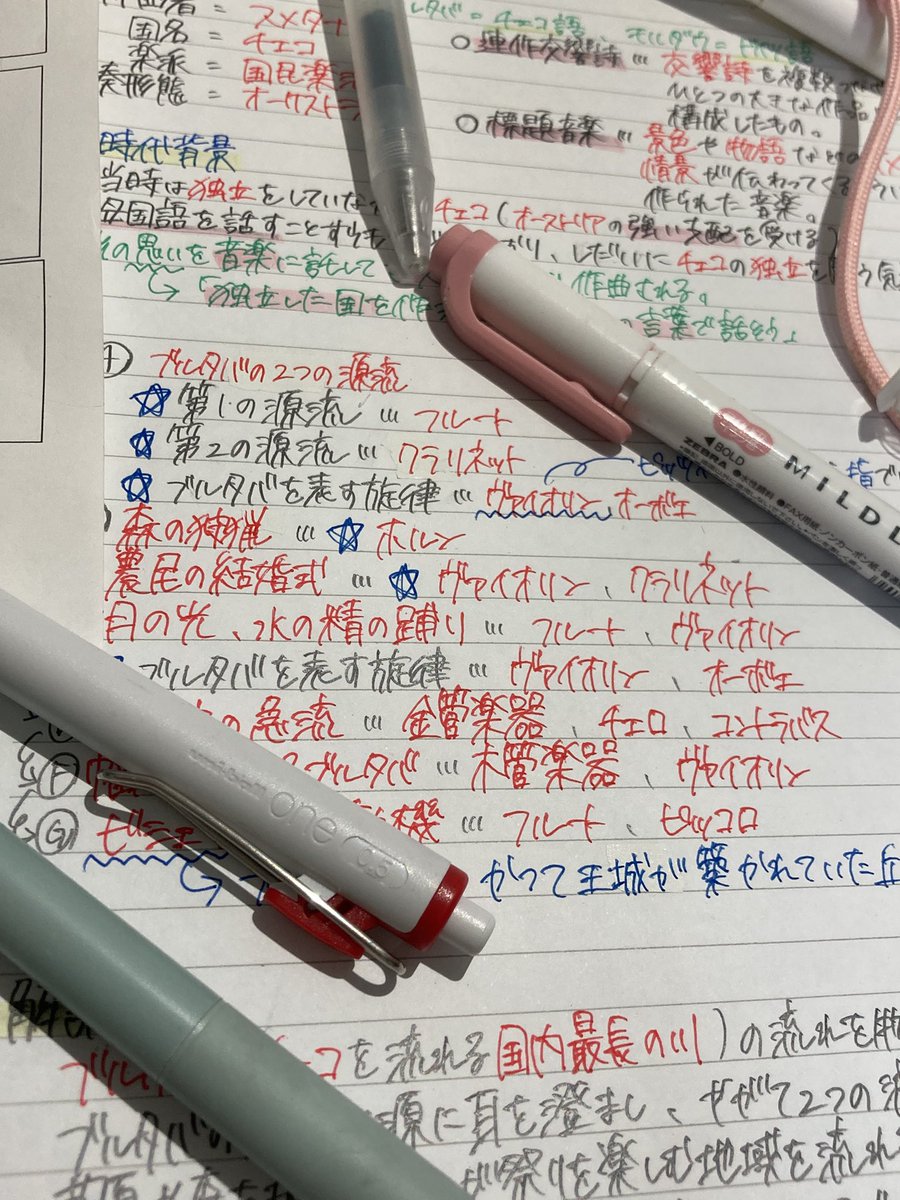 作曲者 = スメタナ
国名 = チェコ
楽派 = 国民楽
奏形態 = オーケストラ
ルタバ = チェコ語、モルダウ = ドイツ語
○連作交響詩 … 交響詩を複数
ひとつの大きな作品
構成したもの。
○標題音楽 … 景色や物語などの
情景が伝わってくる
作られた音楽。
時代背景
当時は独立をしていな
チェコ(オーストリアの強い支配を受ける)
母国語を話すことすらも
り、しだいにチェコの独立を
の思いを音楽に託して
作曲される。
「独立した国を作
の言葉で話そう」
ブルタバの2つの源流
☆第1の源流 … フルート
☆第2の源流 … クラリネット
☆ブルタバを表す旋律 … ヴァイオリン、オーボエ
森の狩猟 … ☆ホルン
農民の結婚式 … ☆ヴァイオリン、クラリネット
月の光、水の精の踊り … フルート、ヴァイオリン
ブルタバを表す旋律 … ヴァイオリン、オーボエ
の急流 … 金管楽器、チェロ、コントラバス
Ⓕ ブルタバ … 木管楽器、ヴァイオリン
Ⓖ ビシェ 機 … フルート、ピッコロ
かつて王城が築かれていた丘
解説
ブル コを流れる国内最長の川)の流れを
ブルタバの 源に耳を澄まし、やがて2つの
が祭りを楽しむ地域を流れ
◀BOLD
ZEBRA ●水性顔料 ●FAX用紙、ノンカーボン紙
MILDL
one
0.5